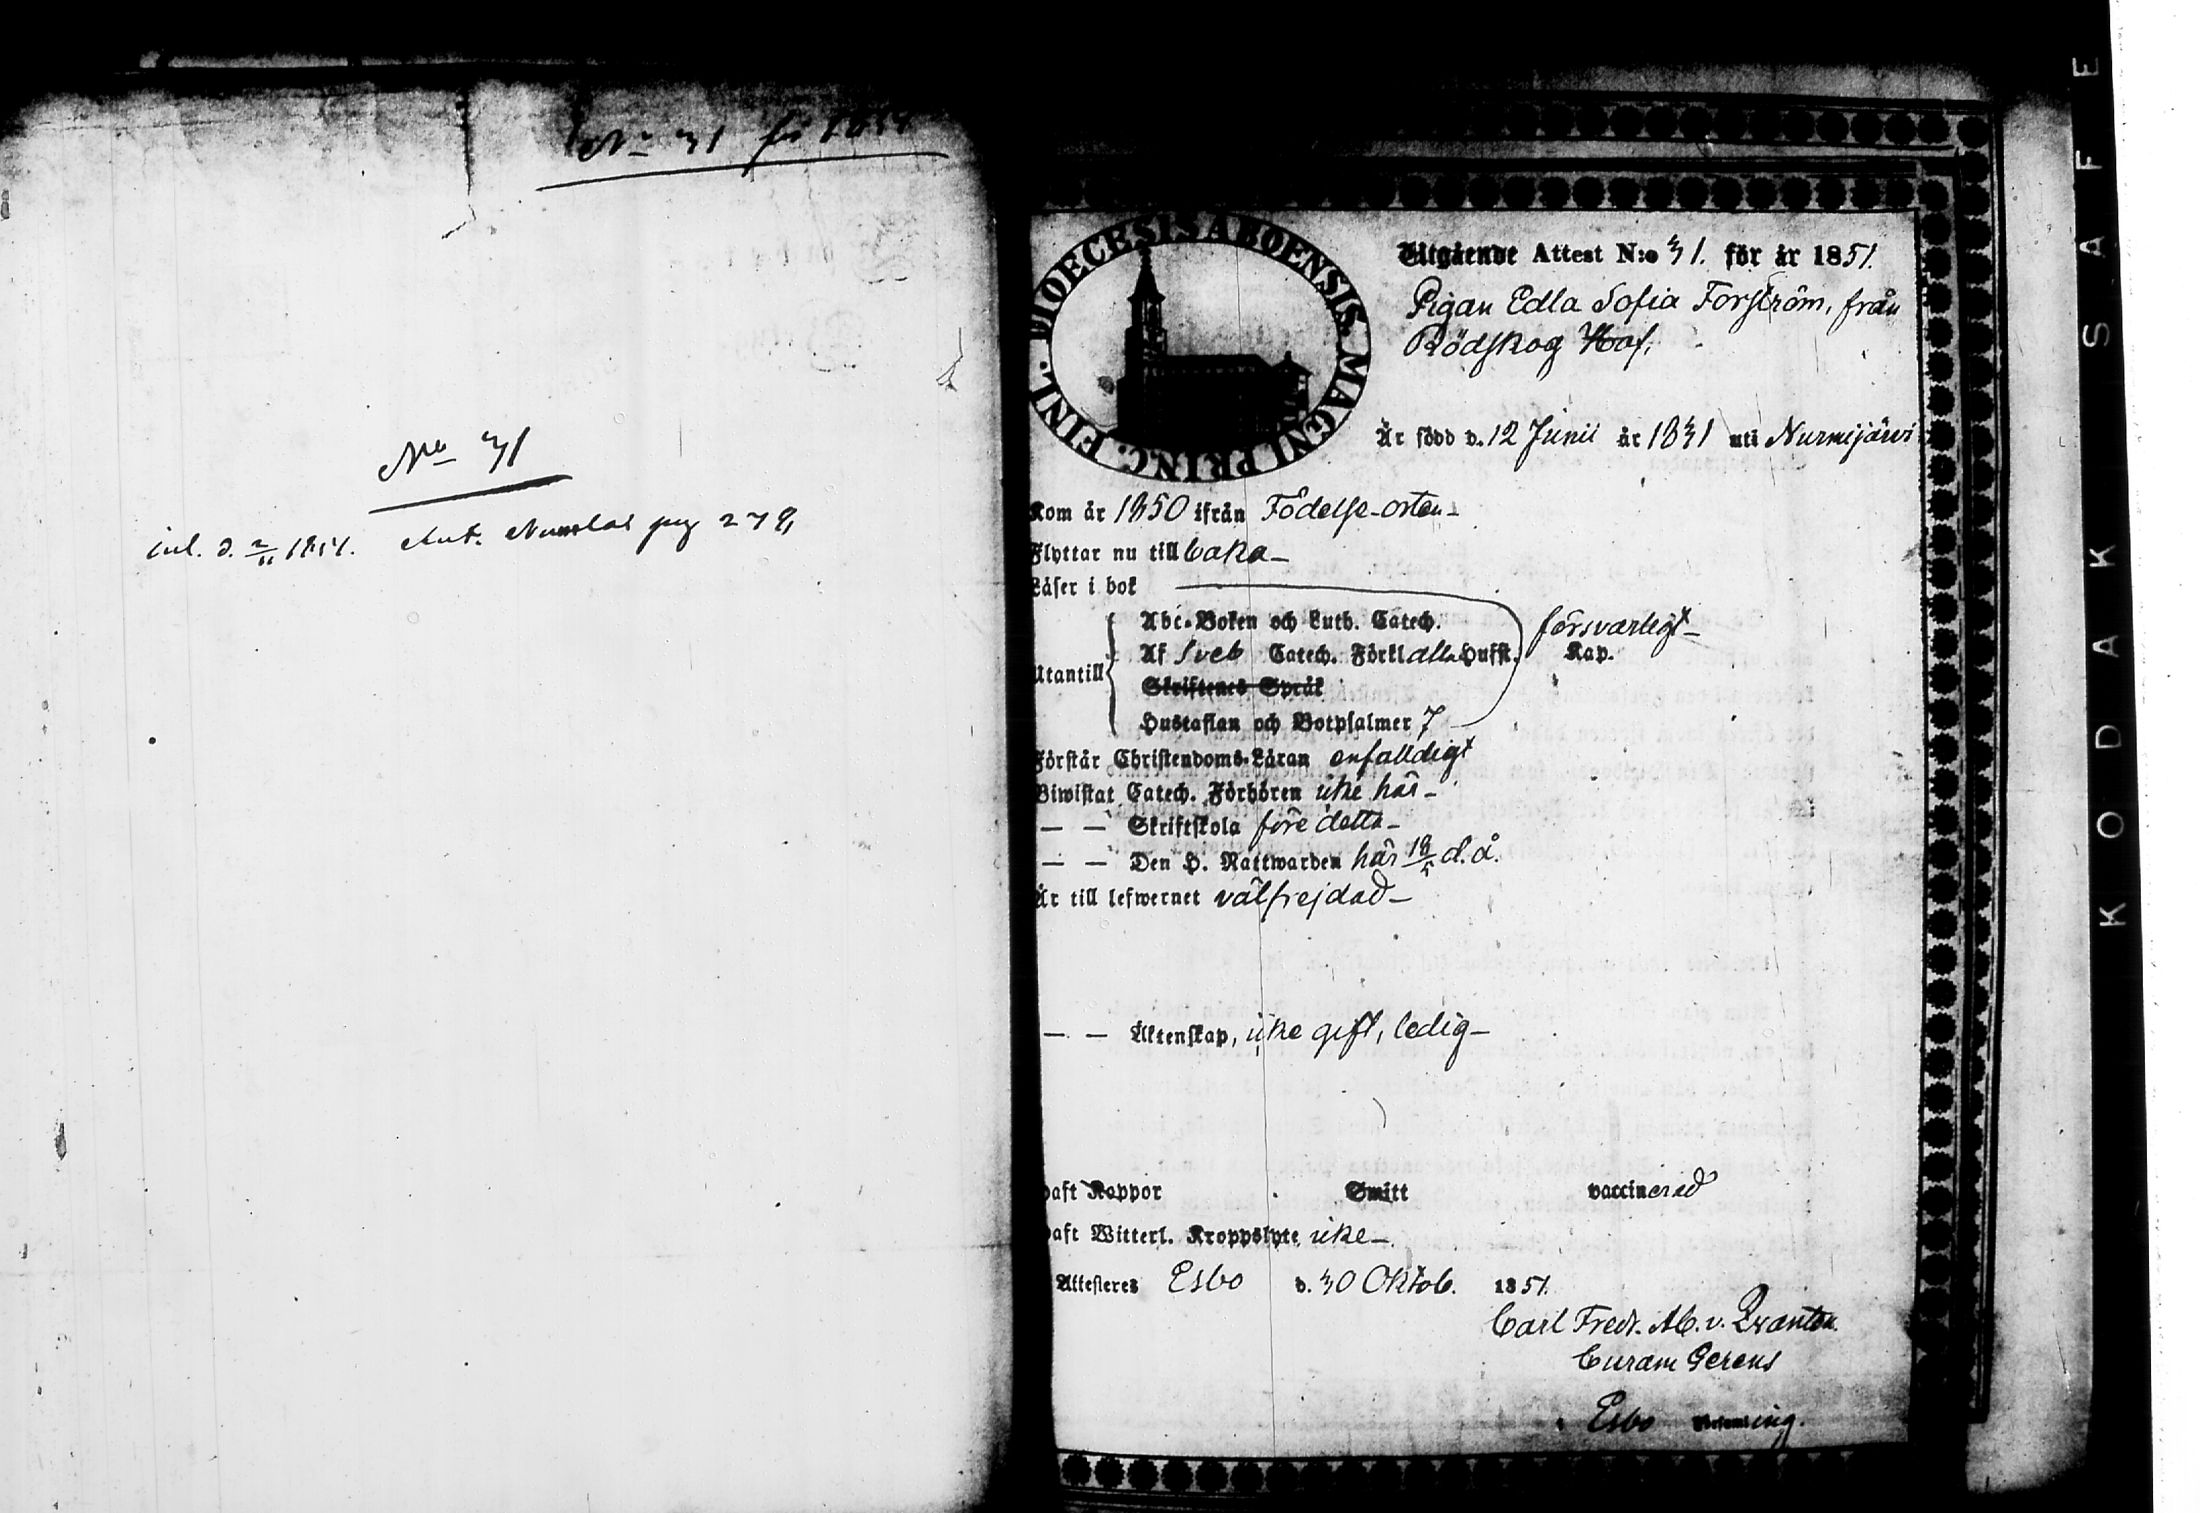 No 31 för 1851
No 31
inl. d. 2/11 1851. Ant. Nummlas pag 279,
DIOECESIS ABOENSIS. MAGNI PRINC. FINL.
Utgående Attest N:o 31. för år 1851.
Pigan Edla Sofia Forström, från
Rödskog Hof.
Är född d. 12 Junii år 1831 uti Nurmijärvi
Kom år 1850 ifrån Födelse-orten-
Flyttar nu till baka-
Läser i bok
Utantill
Abc-Boken och Luth. Catech. försvarligt-
Af Sveb Catech. Förkl alla Hufst. Kap.
Skriftenes Språk
Hustaflan och Botpsalmer 7
Förstår Christendoms-Läran enfalldigt
Biwistat Catech. Förhören icke här-
— — Skriftskola före detta-
— — Den H. Nattwarden här 18/5 d.å.
Är till lefwernet välfrejdad-
— — Äktenskap, icke gift, ledig-
Haft Koppor Smitt vaccinerad
Haft Witterl. Kroppslyte icke-
Attesteras Esbo d. 30 Oktob. 1851.
Carl Fredr. Ab. v. Qvanten.
Curam Gerens
i Esbo Församl ing.
KODAK SAFE